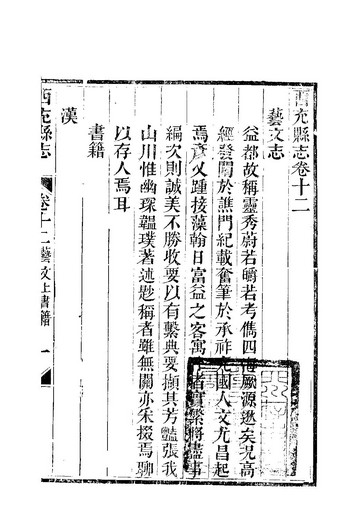 西充縣志卷十二
藝文志
益都故稱靈秀蔚若皭若考儁四 厥源遬矣 高
經發閫於譙門紀載奮筆於承祚 國人文尤昌起
焉彥乂踵接藻翰日富益之客寓 者實繁將盡事
編次則誠美不勝收要以有繫典要擷其芳豔張我
山川惟幽琛韞璞著述尟稱者雖無關亦朱掇焉聊
以存人焉耳
書籍
漢
西充縣志
卷十二藝文上書籍
一